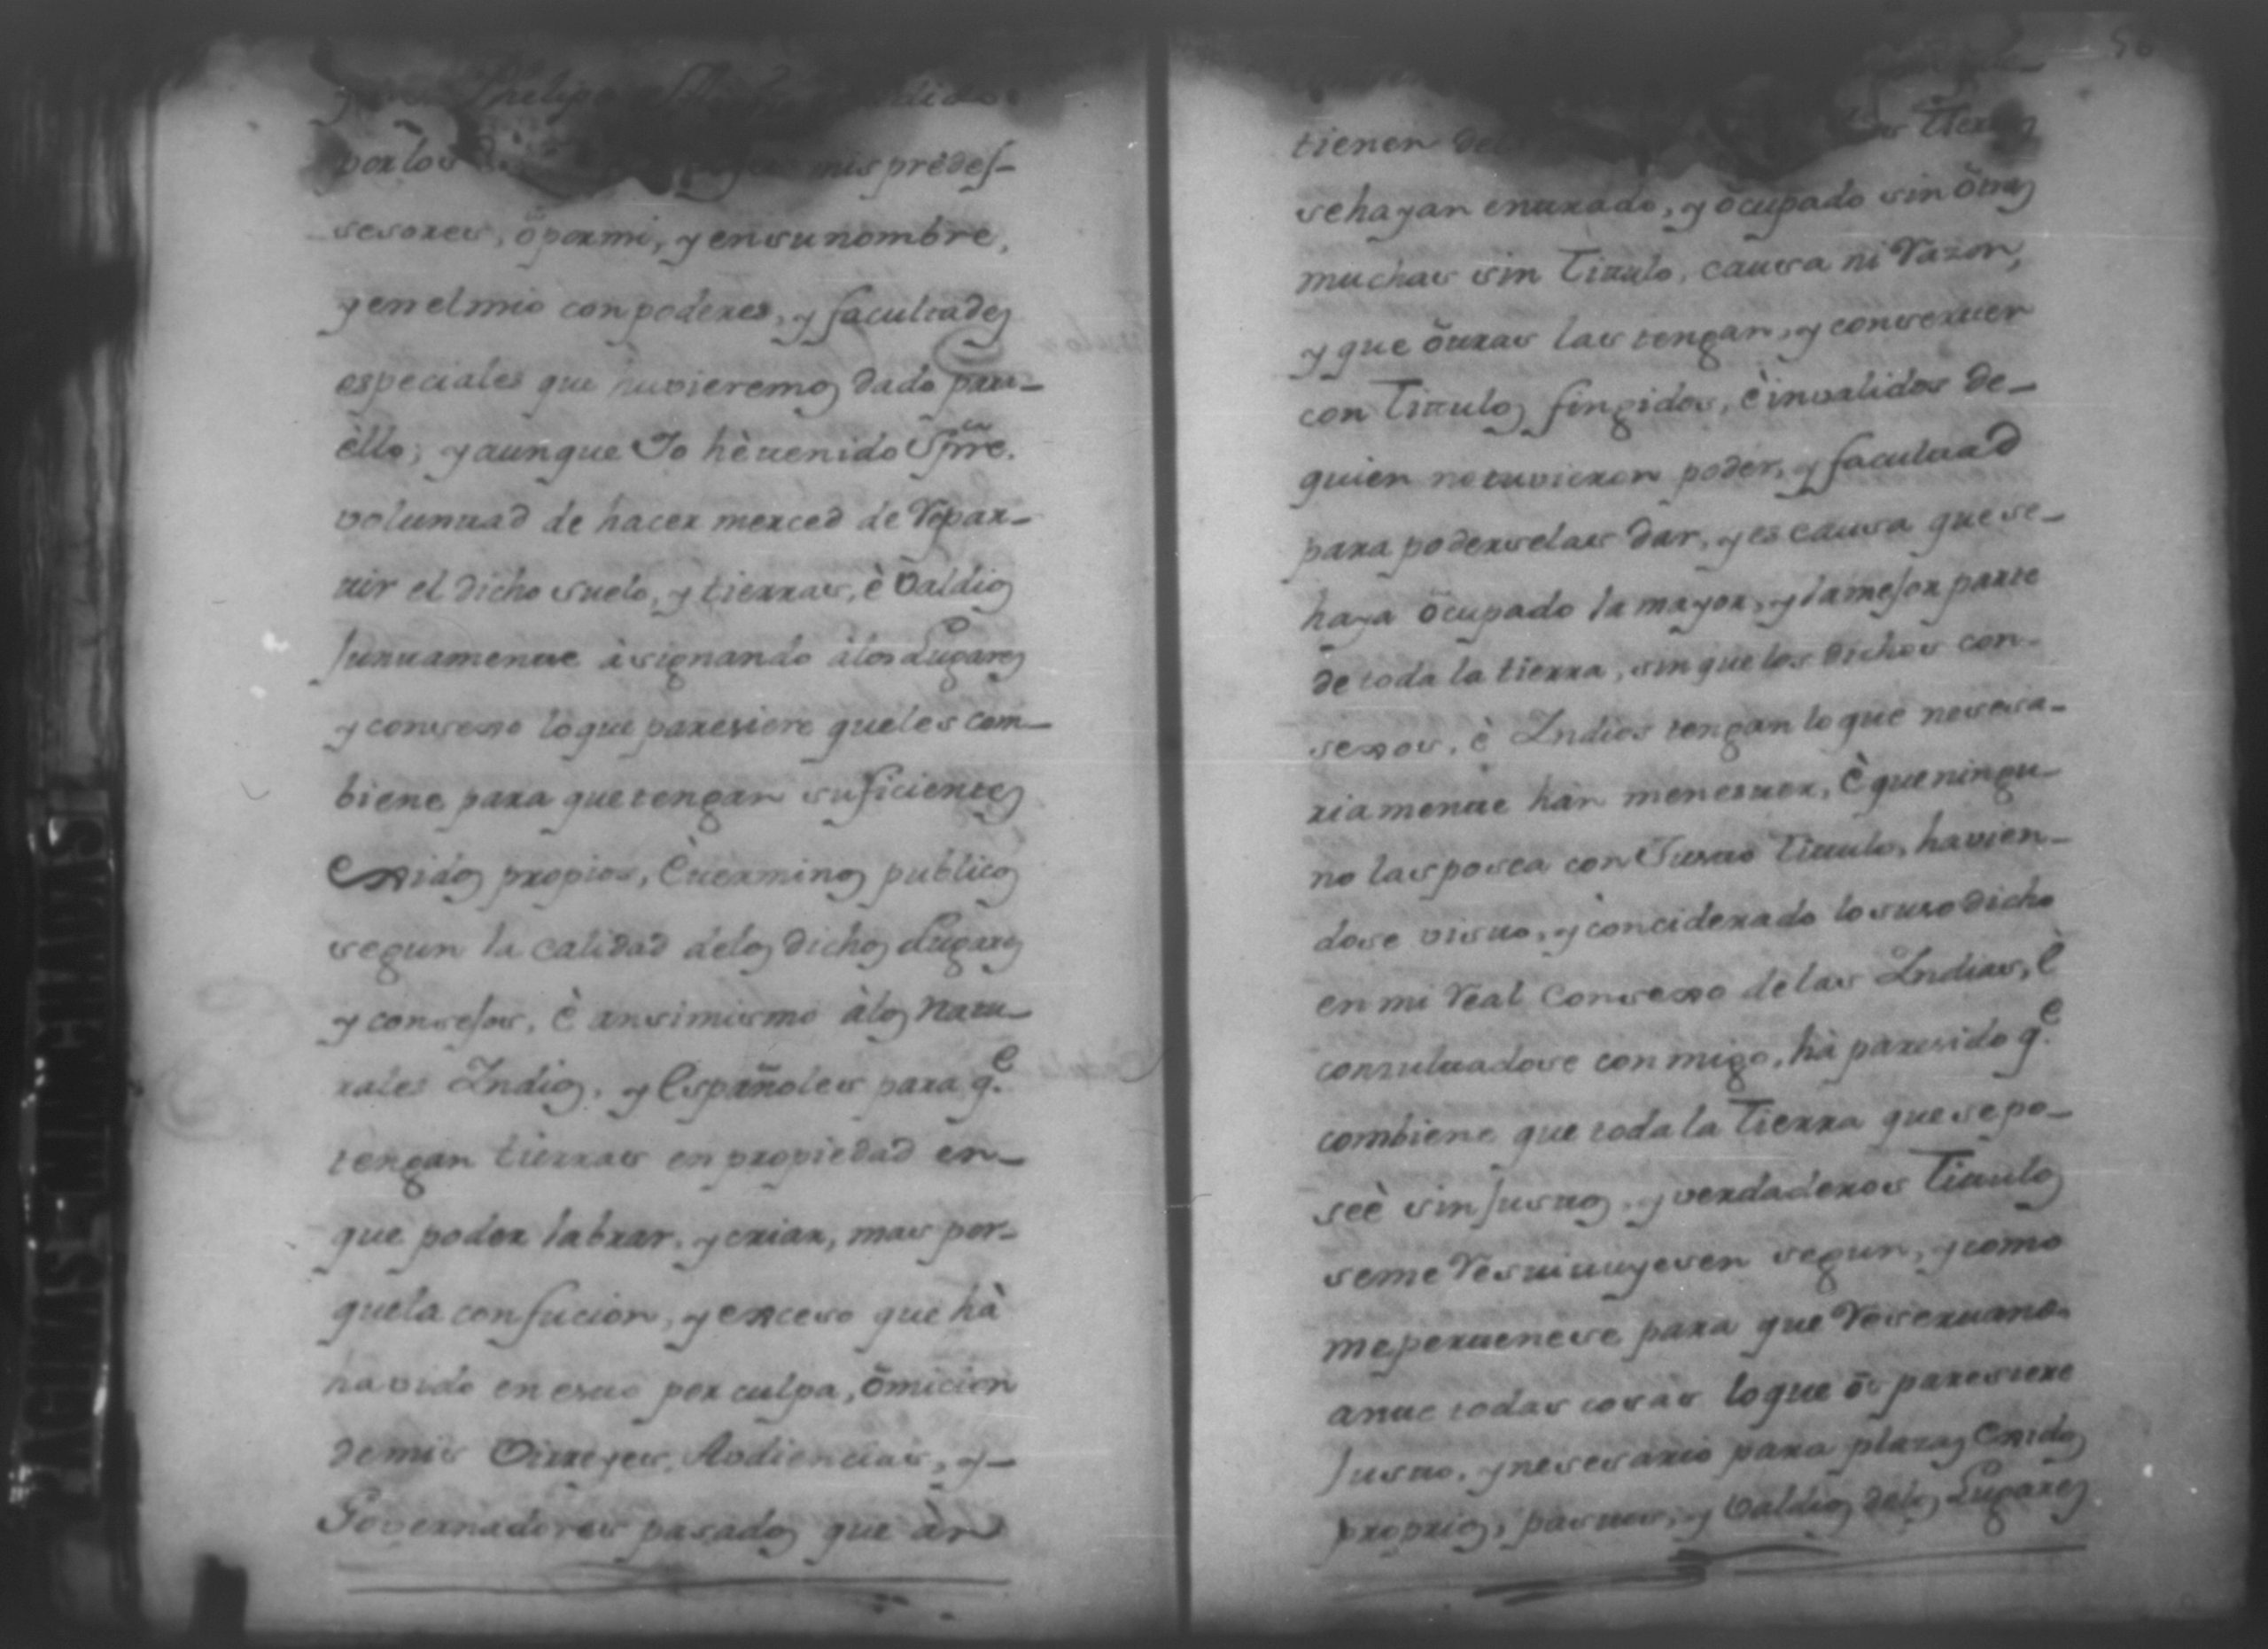 Phelipe
por los mis predes-
sesores, ò por mi, y en su nombre,
y en el mio con poderes, y facultades
especiales que huvieremos dado para-
èllo; y aunque Yo hè tenido Spre.
voluntad de hacer merced de Repar-
tir el dicho suelo, y tierras, è Valdios
Juntamente àsignando àlos Lugares
y consexo lo que paresiere que les com-
biene para que tengan suficientes
Exidos propios, è terminos publicos
segun la calidad delos dichos Lugares
y consejos, è ansimismo àlos Natu-
rales Indios, y Españoles para q.e
tengan tierras en propiedad en-
que poder labrar, y criar, mas por-
que la confucion, y exceso que hà
havido en esto por culpa, òmicion
de mis Virreyes, Audiencias, y-
Governadores pasados que àn
56
tienen Tierras
se hayan entrado, y òcupado sin òtras
muchas sin Titulo, causa ni Razon,
y que òtras las tengan, y conserven
con Titulos fingidos, è invalidos de-
quien no tuvieron poder, y facultad
para poderselas dar, y es causa que se-
haya òcupado la mayor, y la mejor parte
de toda la tierra, sin que los dichos con-
sexos, è Indios tengan lo que nesesa-
riamente han menester, è que ningu-
no las posea con Justo Titulo, havien-
dose visto, y conciderado lo suso dicho
en mi Real Consexo de las Indias, è
consultadose conmigo, hà paresido q.e
combiene que toda la Tierra que se po-
seè sin Justos, y verdaderos Titulos
se me Restituyesen segun, y como
me pertenese para que Reservando-
ante todas cosas lo que òs paresiere
Justo, y nesesario para plazas Exidos
proprios, pastos, y Valdios delos Lugares